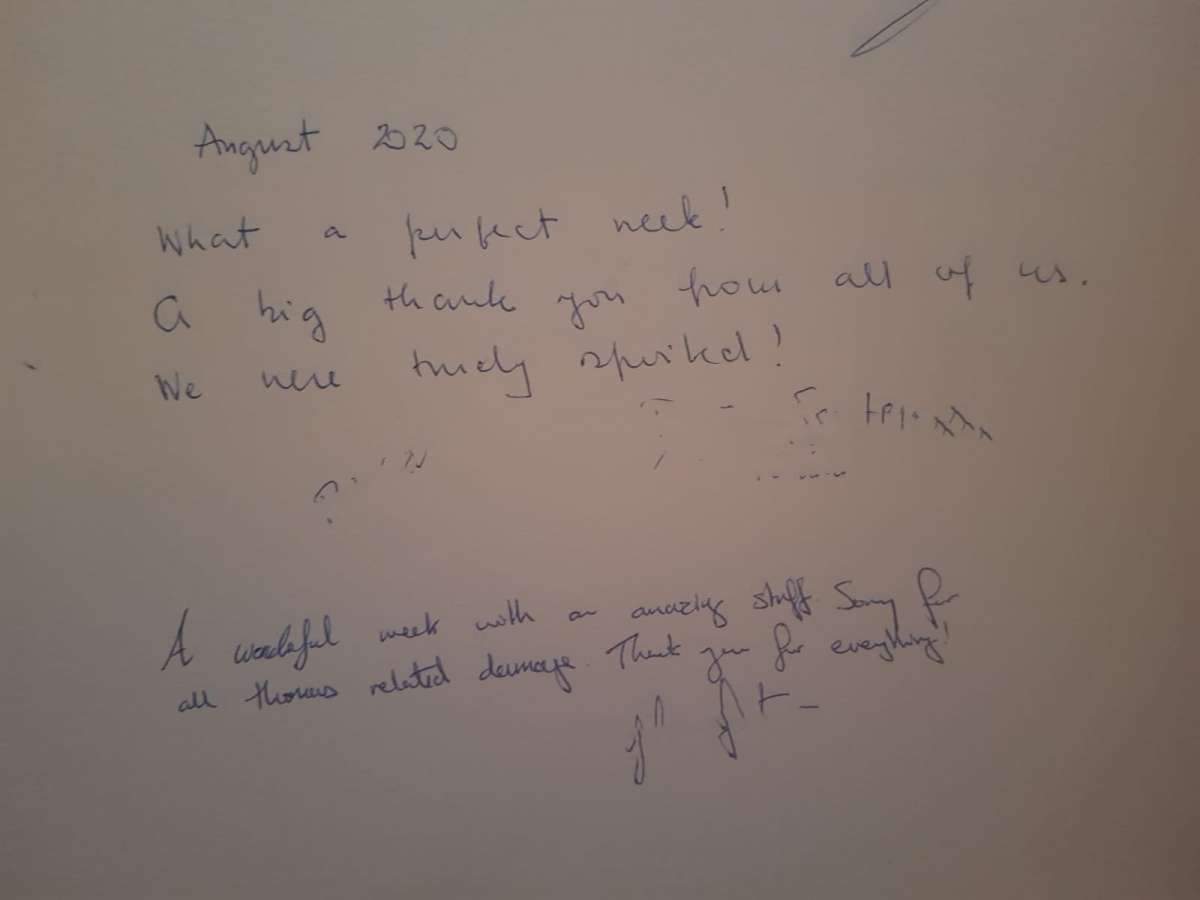 August 2020
What a perfect week!
A big thank you from all of us.
We were truly spoiled!
xxx
A wonderful week with an amazing staff. Sorry for
all Thomas related damage. Thank you for everything!